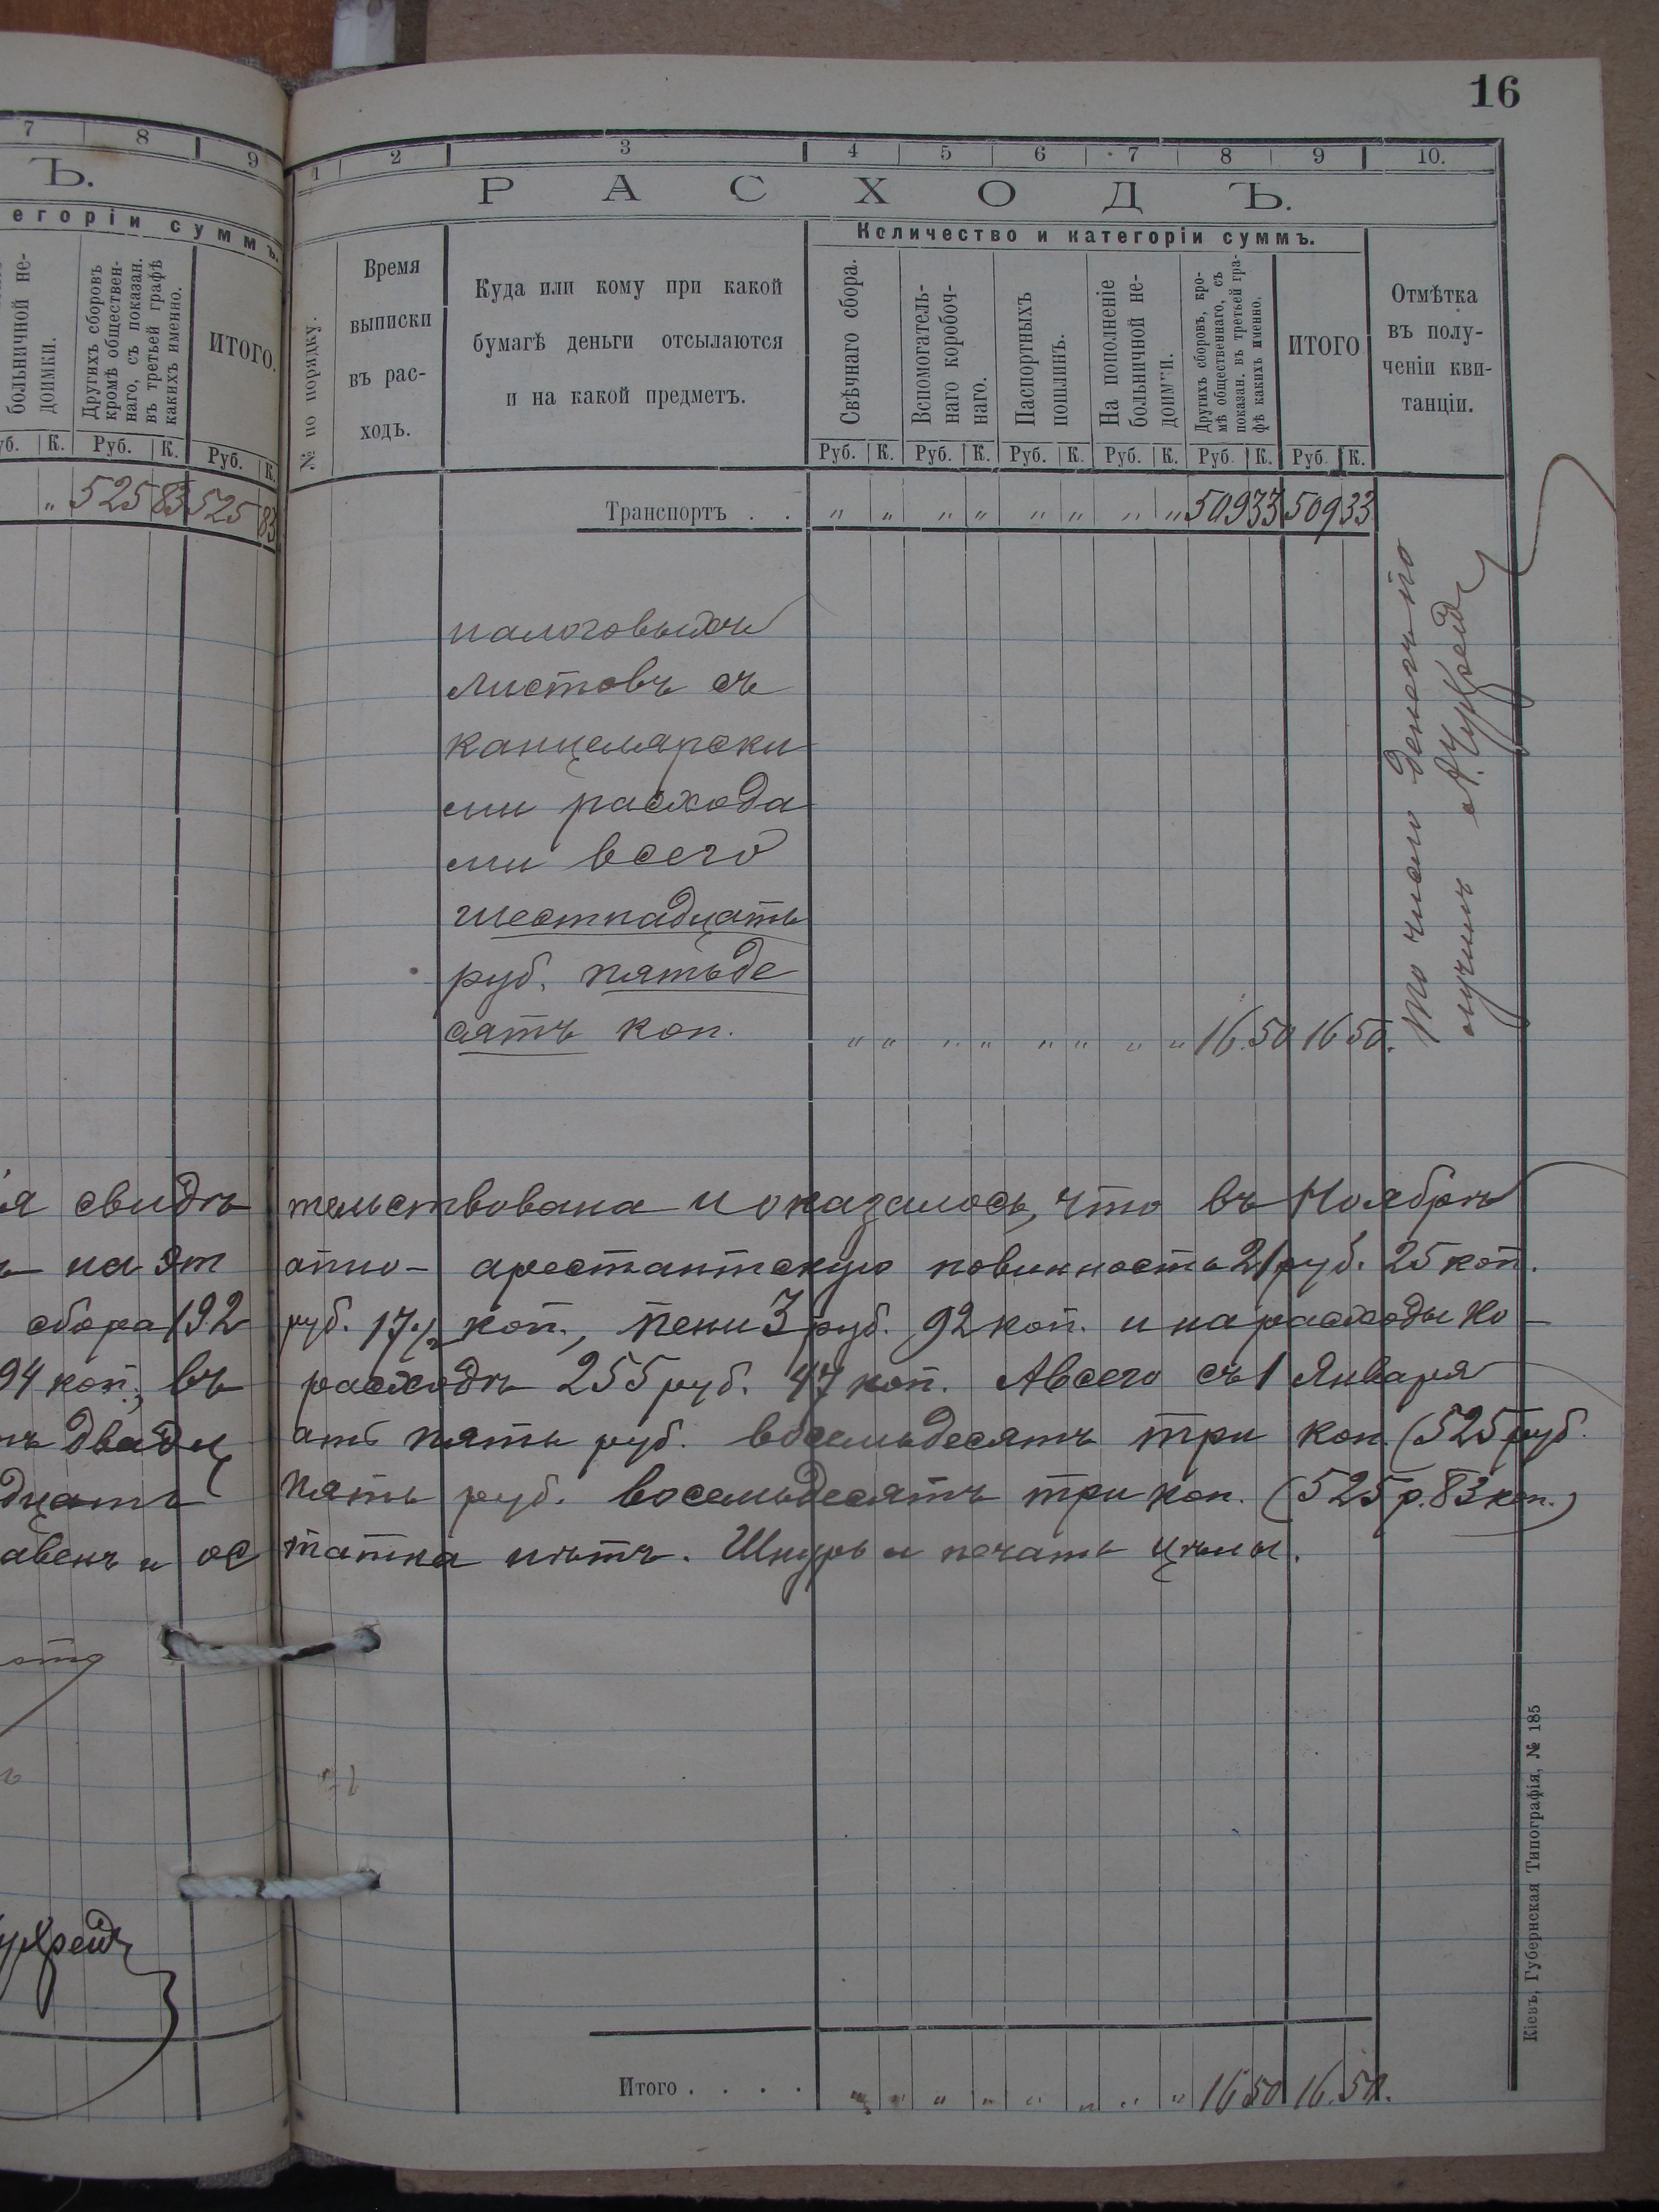 16
7 8 9
Ъ.
егоріи суммъ.
больничной не-
доимки.
Другихъ сборовъ
кромѣ обществен-
наго, съ показан.
въ третьей графѣ
какихъ именно.
ИТОГО.
уб. К. Руб. К. Руб. К.
" 525 83 525 83
1 2 3 4 5 6 7 8 9 10.
РАСХОДЪ.
Количество и категоріи суммъ.
№ по порядку.
Время
выписки
въ рас-
ходъ.
Куда или кому при какой
бумагѣ деньги отсылаются
и на какой предметъ.
Свѣчнаго сбора.
Вспомогатель-
наго коробоч-
наго.
Паспортныхъ
пошлинъ.
На пополненіе
больничной не-
доимки.
Другихъ сборовъ, кро-
мѣ общественнаго, съ
показан. въ третьей гра-
фѣ какихъ именно.
ИТОГО
Отмѣтка
въ полу-
ченіи кви-
танціи.
Руб. К. Руб. К. Руб. К. Руб. К. Руб. К. Руб. К.
Транспортъ . . " " " " " " " " 509 33 509 33
налоговыхъ
листовъ съ
канцелярски
ми расхода
ми всего
шестнадцать
руб. пятьде
сятъ коп. " " " " " " " " 16.50 16 50.
то число денегъ по
лучилъ
я свидѣ тельствована и оказалось, что въ Ноябрѣ
на эт апно- арестантскую повинность 21 руб. 25 коп.
сбора 192 руб. 17½ коп., пени 3 руб. 92 коп. и на расходы по
94 коп., въ расходѣ 255 руб. 47 коп. А всего съ 1 Января
двадц ать пять руб. восемьдесятъ три коп. (525 руб.
дцать пять руб. восемьдесятъ три коп. (525 р. 83 коп.)
авенъ и ос татка нѣтъ. Шнуръ и печать цѣлы.
Итого . . . . " " " " " " " " 16 50 16.50.
Кіевъ, Губернская Типографія, № 185